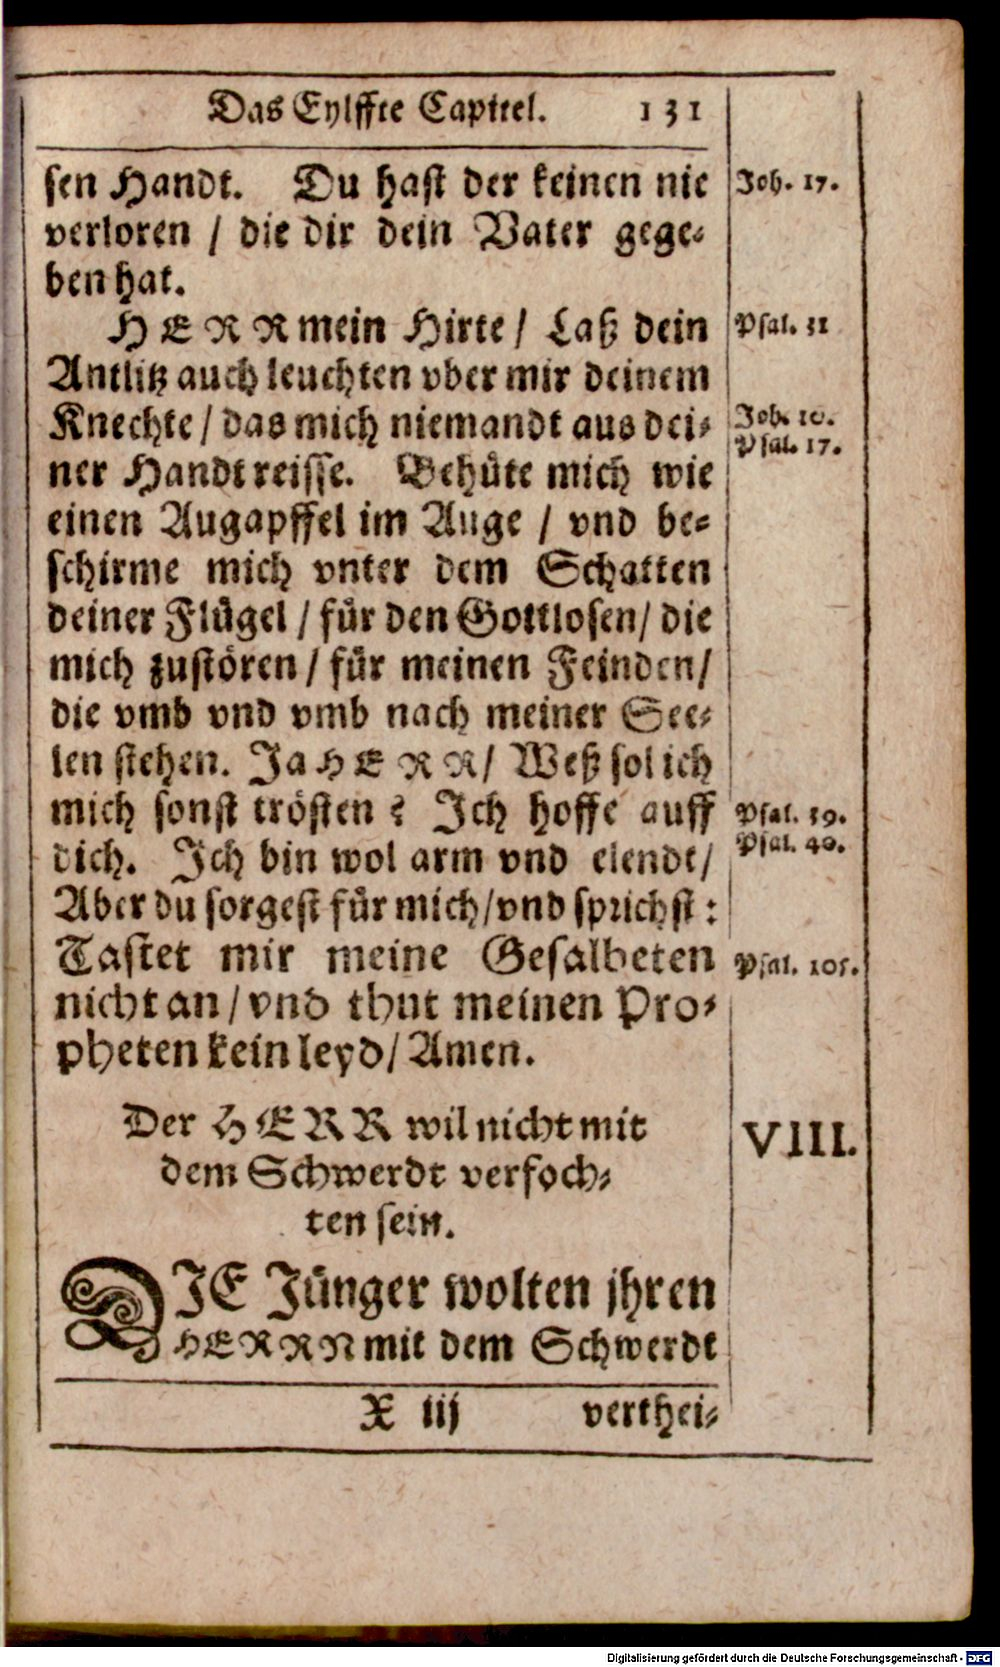 Das Eylffte Capittel. 131
sen Handt. Du hast der keinen nie
Joh. 17.
verloren / die dir dein Vater gege⸗
ben hat.
HERR mein Hirte / Laß dein
Psal. 31
Antlitz auch leuchten vber mir deinem
Knechte / das mich niemandt aus dei⸗
Joh. 10.
Psal. 17.
ner Handt reisse. Behuͤte mich wie
einen Augapffel im Auge / vnd be⸗
schirme mich vnter dem Schatten
deiner Fluͤgel / fuͤr den Gottlosen / die
mich zustoͤren / fuͤr meinen Feinden /
die vmb vnd vmb nach meiner See⸗
len stehen. Ja HERR / Weß sol ich
mich sonst troͤsten? Ich hoffe auff
Psal. 39.
Psal. 40.
dich. Ich bin wol arm vnd elendt /
Aber du sorgest fuͤr mich / vnd sprichst:
Tastet mir meine Gesalbeten
Psal. 105.
nicht an / vnd thut meinen Pro⸗
pheten kein leyd / Amen.
Der HERR wil nicht mit
VIII.
dem Schwerdt verfoch⸗
ten sein.
DIE Juͤnger wolten jhren
HERRN mit dem Schwerdt
X iij verthei⸗
Digitalisierung gefördert durch die Deutsche Forschungsgemeinschaft - DFG